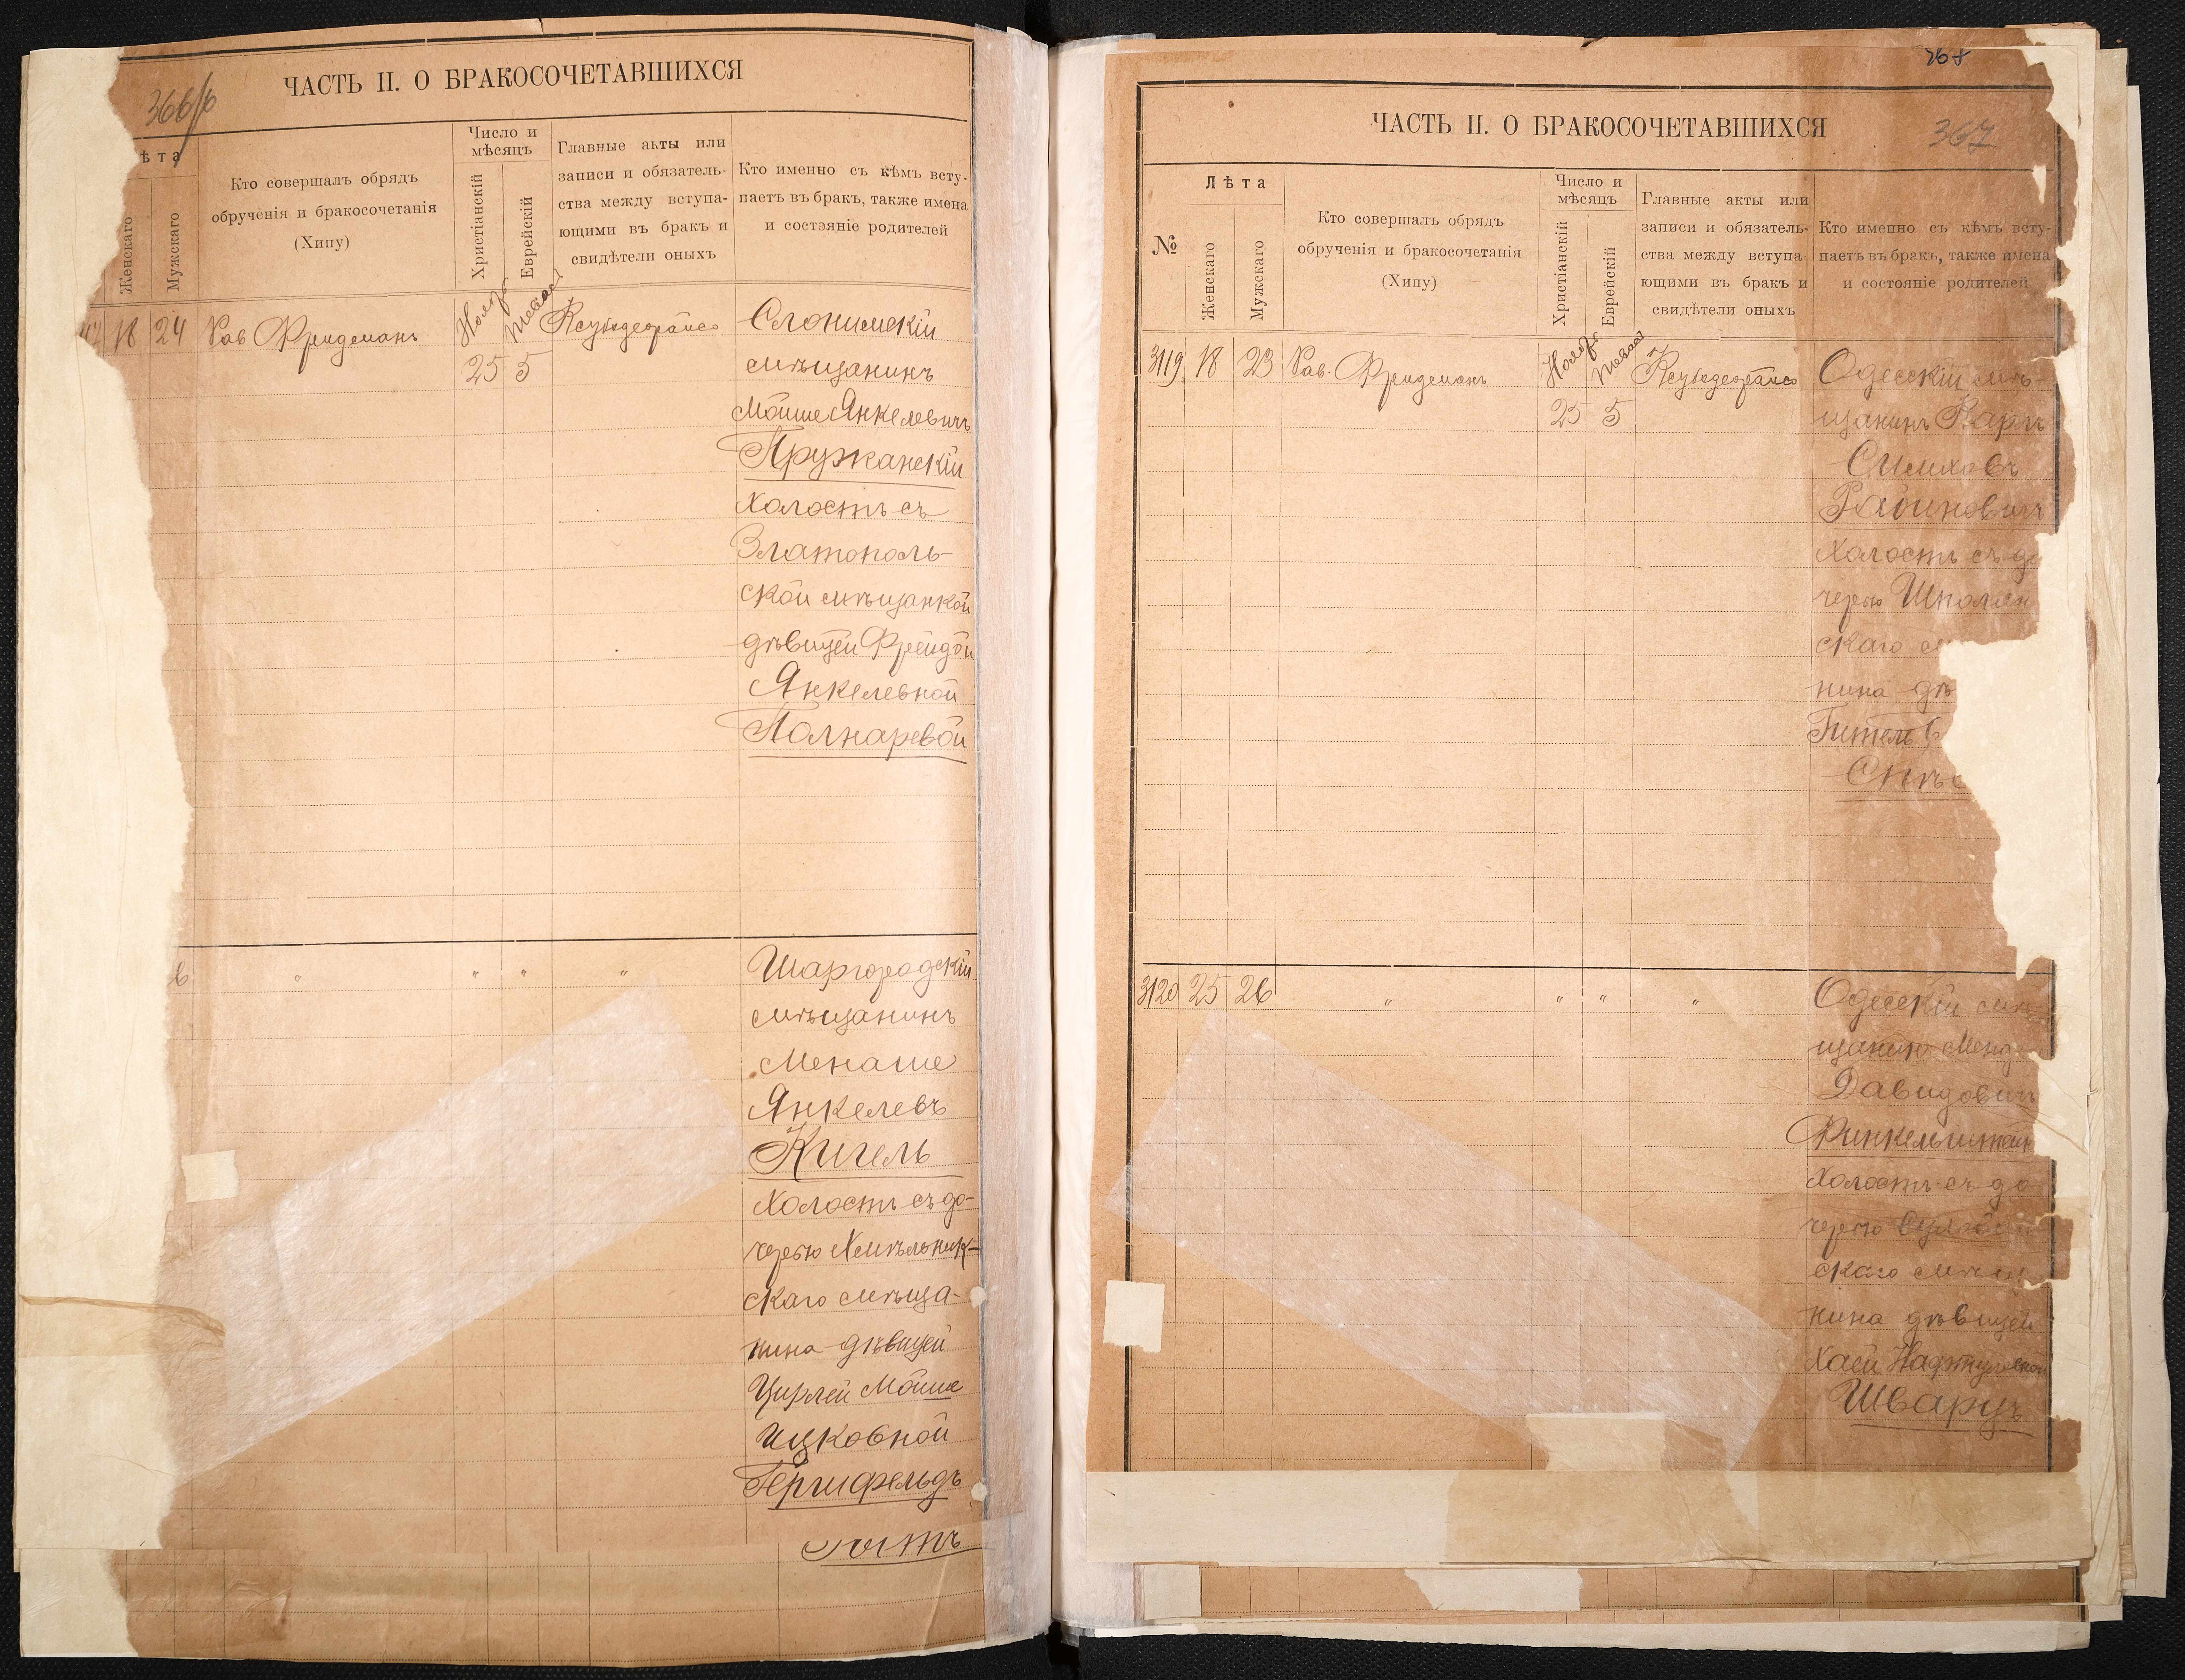 366/б
ЧАСТЬ II. О БРАКОСОЧЕТАВШИХСЯ
ѣта
Женскаго
Мужскаго
Кто совершалъ обрядъ
обрученія и бракосочетанія
(Хипу)
Число и
мѣсяцъ
Христіанскій
Еврейскій
Главные акты или
записи и обязатель-
ства между вступа-
ющими въ бракъ и
свидѣтели оныхъ
Кто именно съ кѣмъ всту-
паетъ въ бракъ, также имена
и состояніе родителей
18 24 Рав Фридманъ
25 5
Слонимскій
мѣщанинъ
Мойше Янкелевичъ
Пружанскій
холостъ съ
Златополь-
ской мѣщанкой
дѣвицей Фрейдой
Янкелевной
Полнаревой
" " " "
Шаргородскій
мѣщанинъ
Менаше
Янкелевъ
Кигель
холостъ съ до-
черью Хмѣльник-
скаго мѣща-
нина дѣвицей
Цирлей Мойше
Ицковной
Герцфельдъ
367
ЧАСТЬ II. О БРАКОСОЧЕТАВШИХСЯ
№
Лѣта
Женскаго
Мужскаго
Кто совершалъ обрядъ
обрученія и бракосочетанія
(Хипу)
Число и
мѣсяцъ
Христіанскій
Еврейскій
Главные акты или
записи и обязатель-
ства между вступа-
ющими въ бракъ и
свидѣтели оныхъ
Кто именно съ кѣмъ всту-
паетъ въ бракъ, также имена
и состояніе родителей
3119 18 23 Рав. Фридманъ
25 5
Одесскій мѣ-
щанинъ
Симховъ
Рабиновичъ
холостъ съ до
черью Шполян
скаго м
нина дѣ
3120 25 26 " " " "
Одесскій мѣ-
щанинъ Менд
Давидовичъ
Финкельштейн
холостъ съ до
черью
скаго мѣщ
нина дѣвицей
Хаей Нафтулевной
Шварцъ